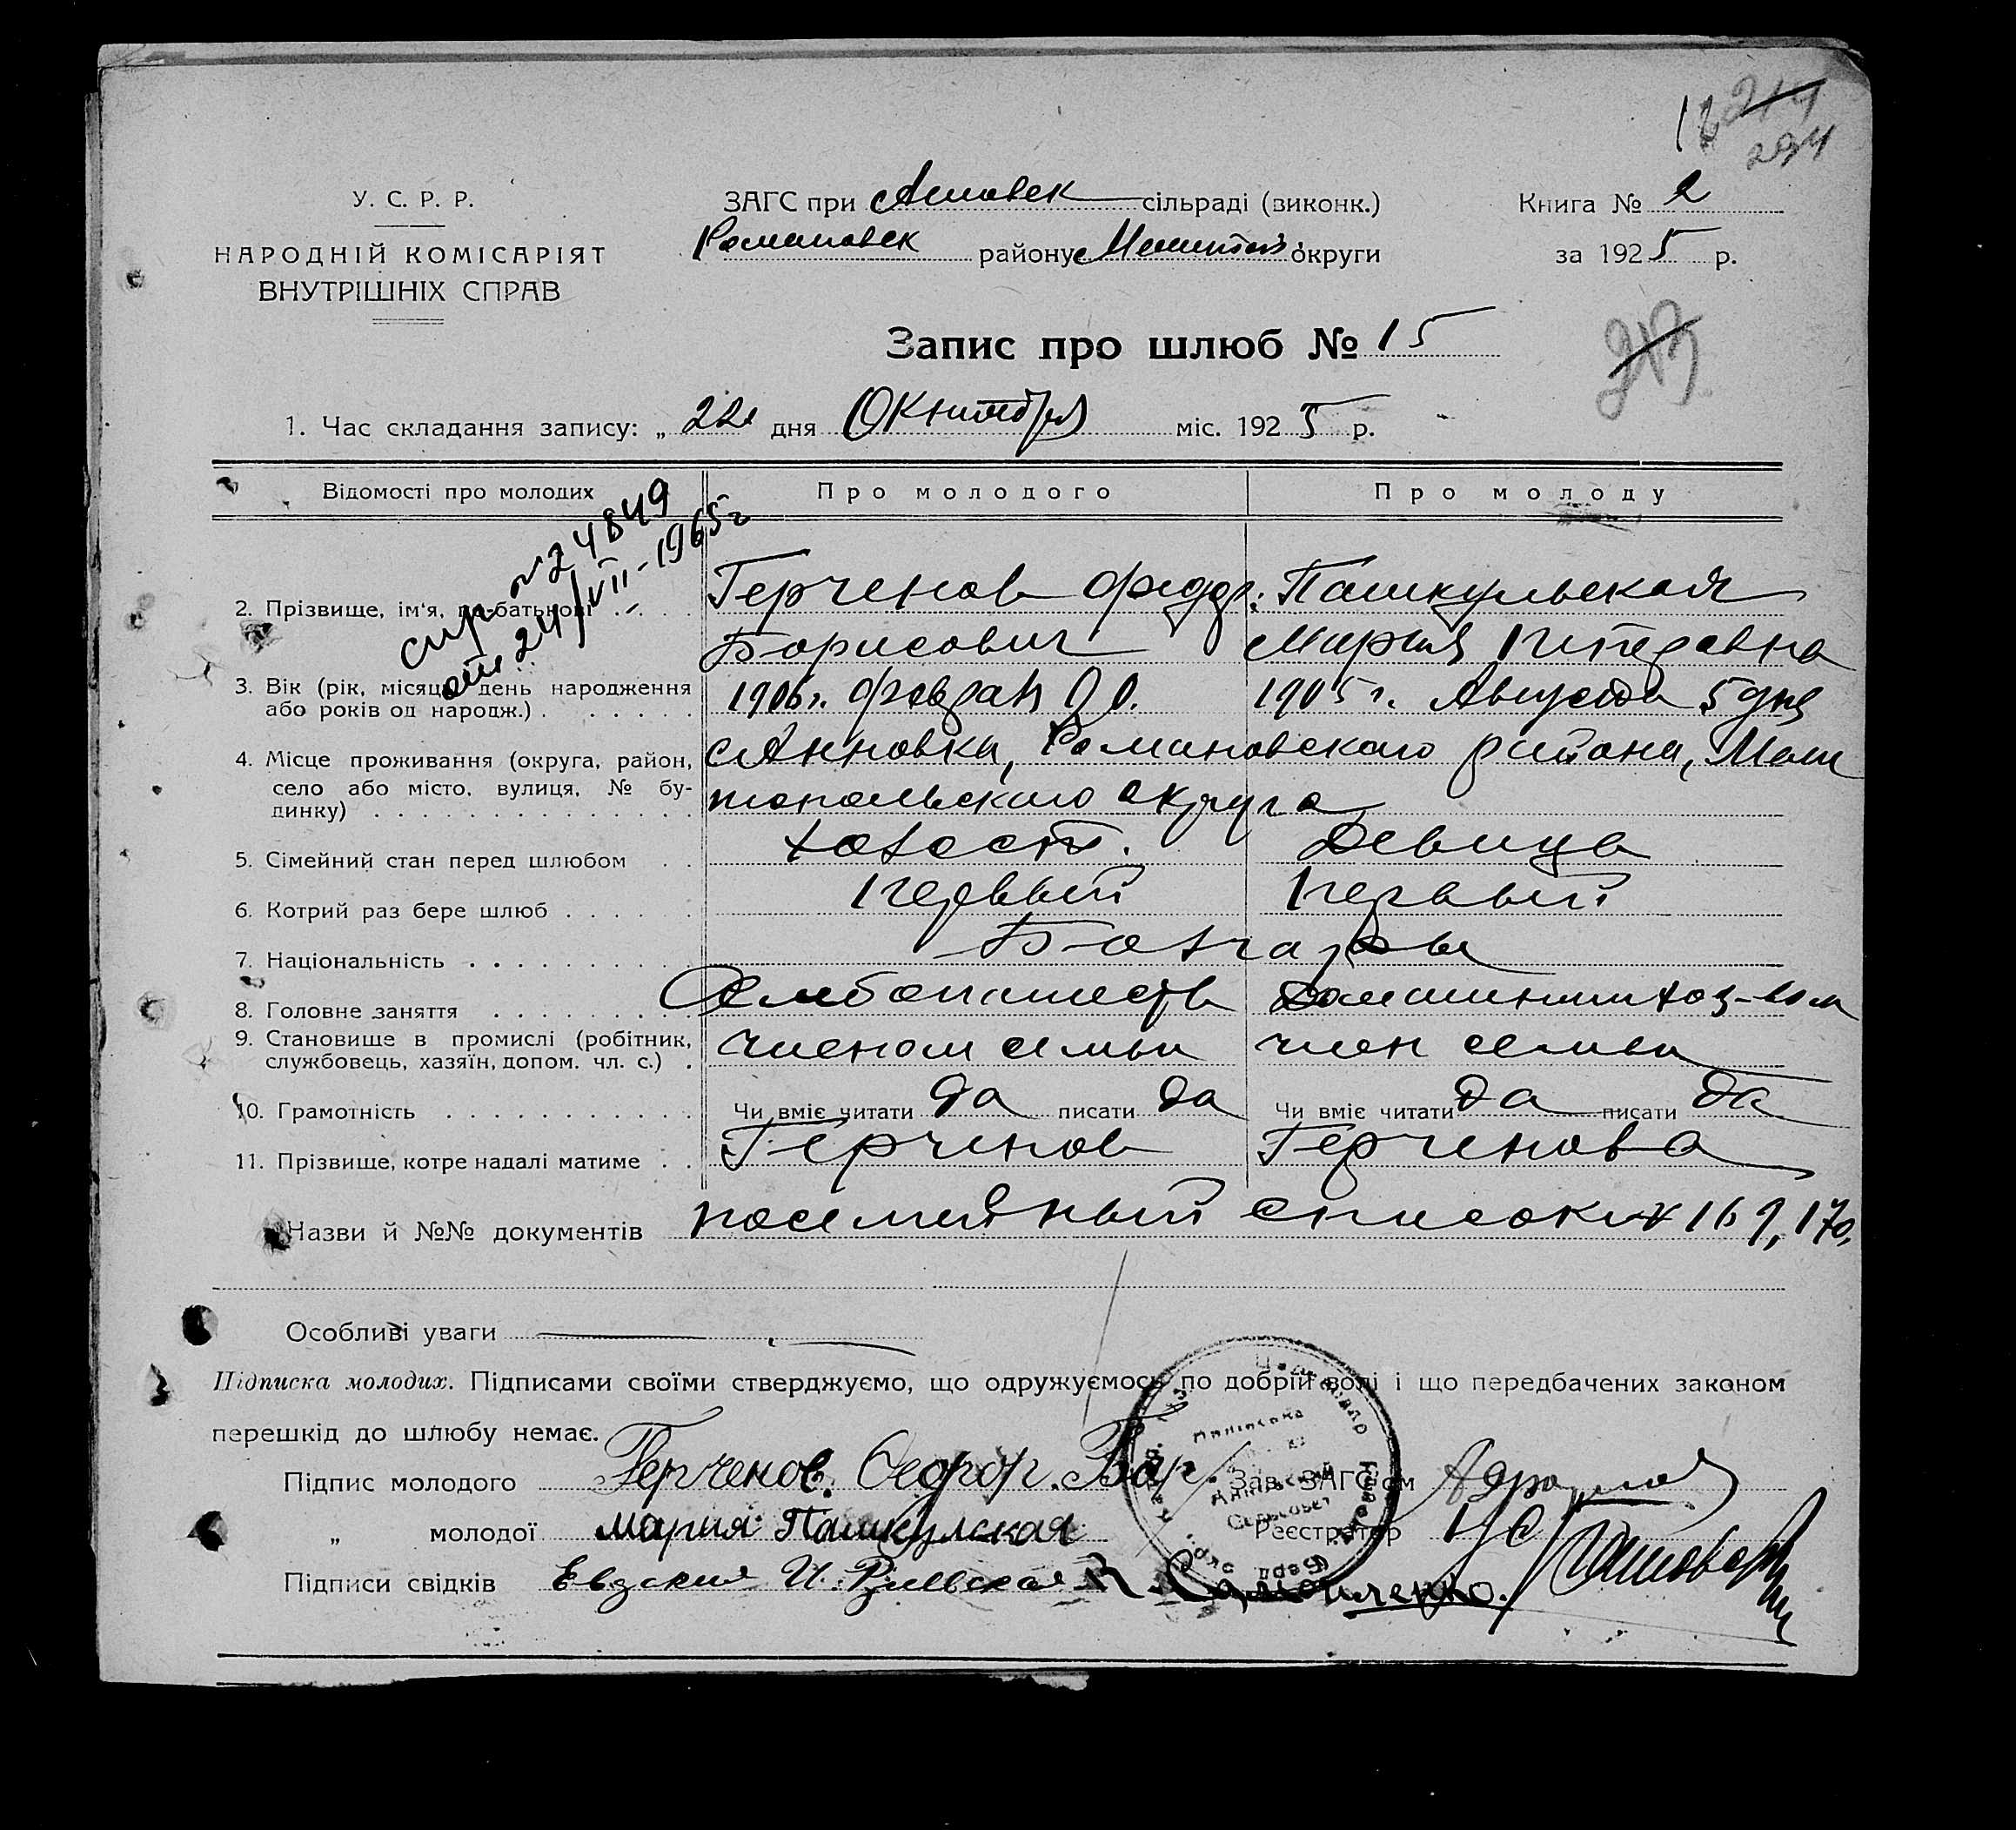 214
294
У. С. Р. Р.
НАРОДНІЙ КОМІСАРІЯТ
ВНУТРІШНІХ СПРАВ
ЗАГС при Анновск сільраді (виконк.)
Романовск району Мелитоп. округи
Книга № 2
за 1925 р.
213
Запис про шлюб № 15
1. Час складання запису: „ 22 дня Октября міс. 1925 р.
Відомості про молодих Про молодого Про молоду
спр № 24849
от 24/VII-1965 г
2. Прізвище, ім'я, по-батькові Герченов Федор. Пашкульская
Борисович Мария Питровна
3. Вік (рік, місяць, день народження
або років од народж.) 1906 г. Феврал 1905 г. Августа 5 дня
4. Місце проживання (округа, район,
село або місто, вулиця, № бу-
динку)
с Анновки, Романовского района, Мели
топольского округа
5. Сімейний стан перед шлюбом Холост. Девица
6. Котрий раз бере шлюб Первый Первый
7. Національність Болгары
8. Головне заняття Хлебопашеств Домашним хоз-вом
9. Становище в промислі (робітник,
службовець, хазяїн, допом. чл. с.) членом семьи член семьи
10. Грамотність Чи вміє читати да писати да Чи вміє читати да писати да
11. Прізвище, котре надалі матиме Герченов Герченова
Назви й №№ документів посемейный список № 169, 170.
Особливі уваги
Підписка молодих. Підписами своїми стверджуємо, що одружуємось по добрій волі і що передбачених законом
перешкід до шлюбу немає.
Підпис молодого Герченов. Федор. Бор. Зав. ЗАГС'ом
„ молодої Мария Пашкулская Реєстратор
Підписи свідків
Сельсовет